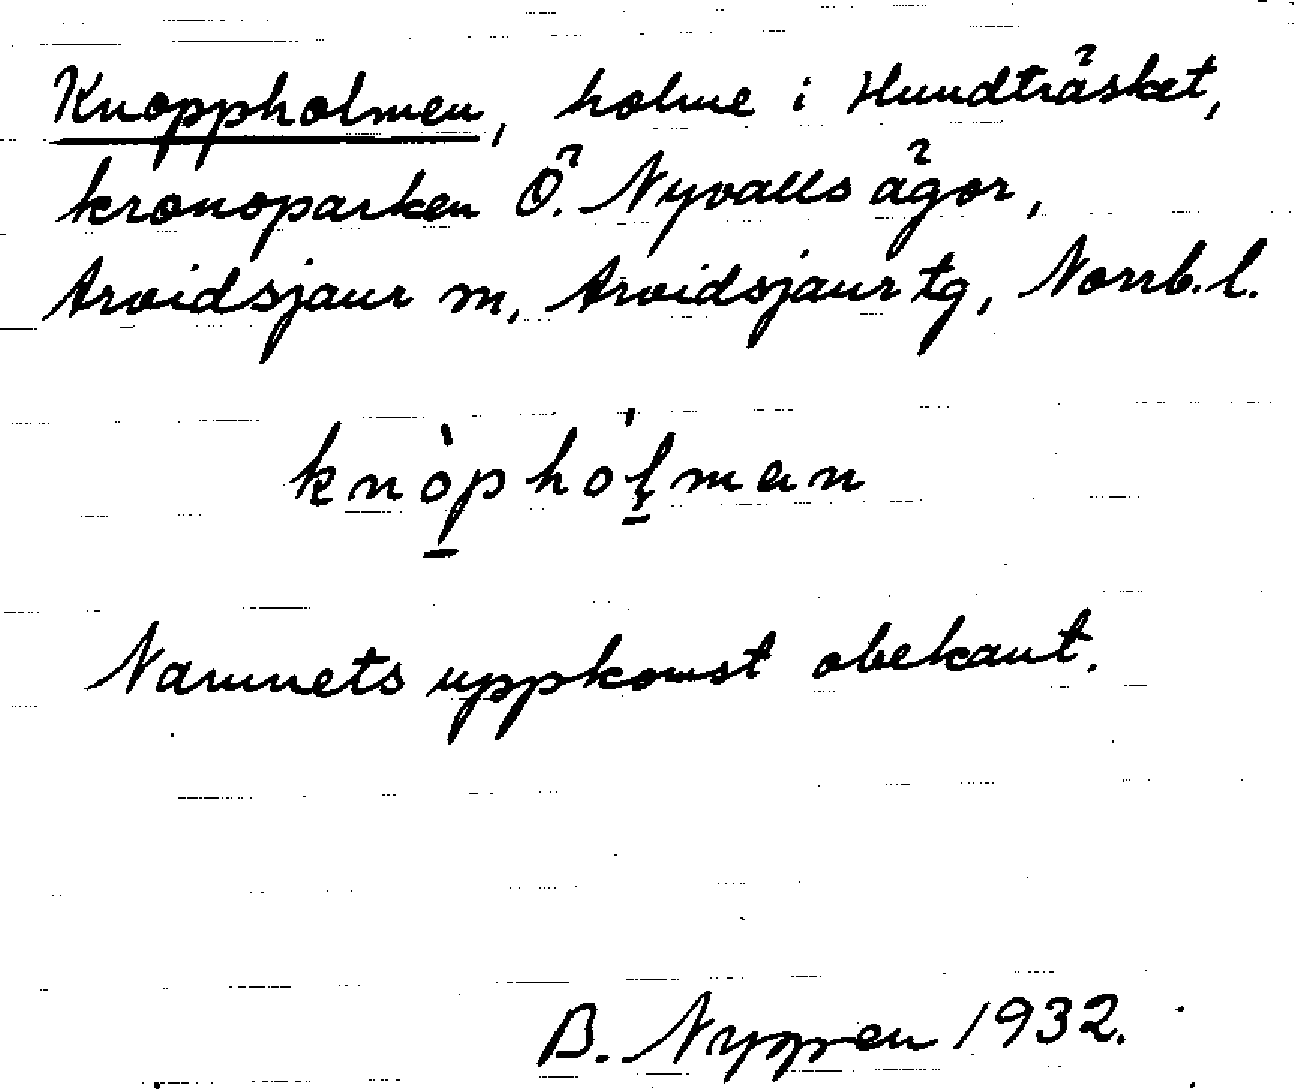 Knoppholmen, holme i Hundträsket,
kronoparken Ö. Nyvalls ägor,
Arvidsjaur sn, Arvidsjaur tg, Norrb. l.
knò̱phó̱ḷmen
Namnets uppkomst obekant.
B. Nygren 1932.